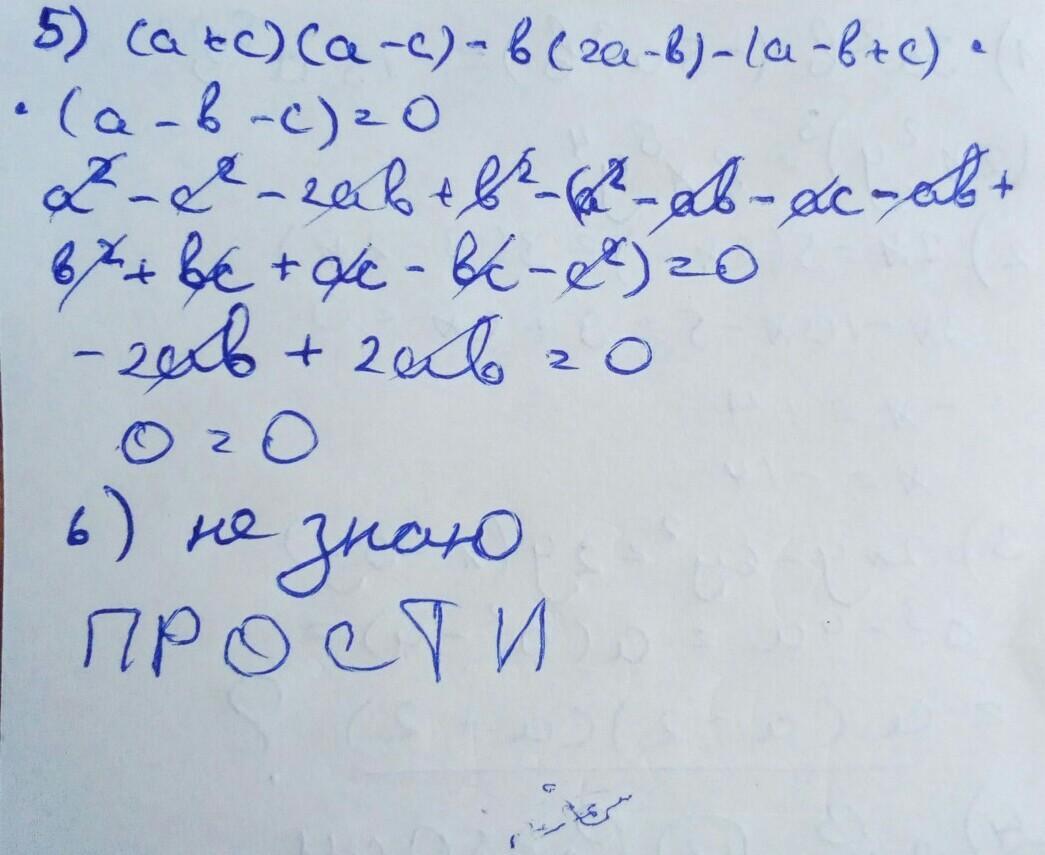 5) (a+c)(a-c)-b(2a-b)-(a-b+c)·
·(a-b-c)=0
a²-c²-2ab+b²-(a²-ab-ac-ab+
b²+bc+ac-bc-c²)=0
-2ab+2ab=0
0=0
6) не знаю
ПРОСТИ